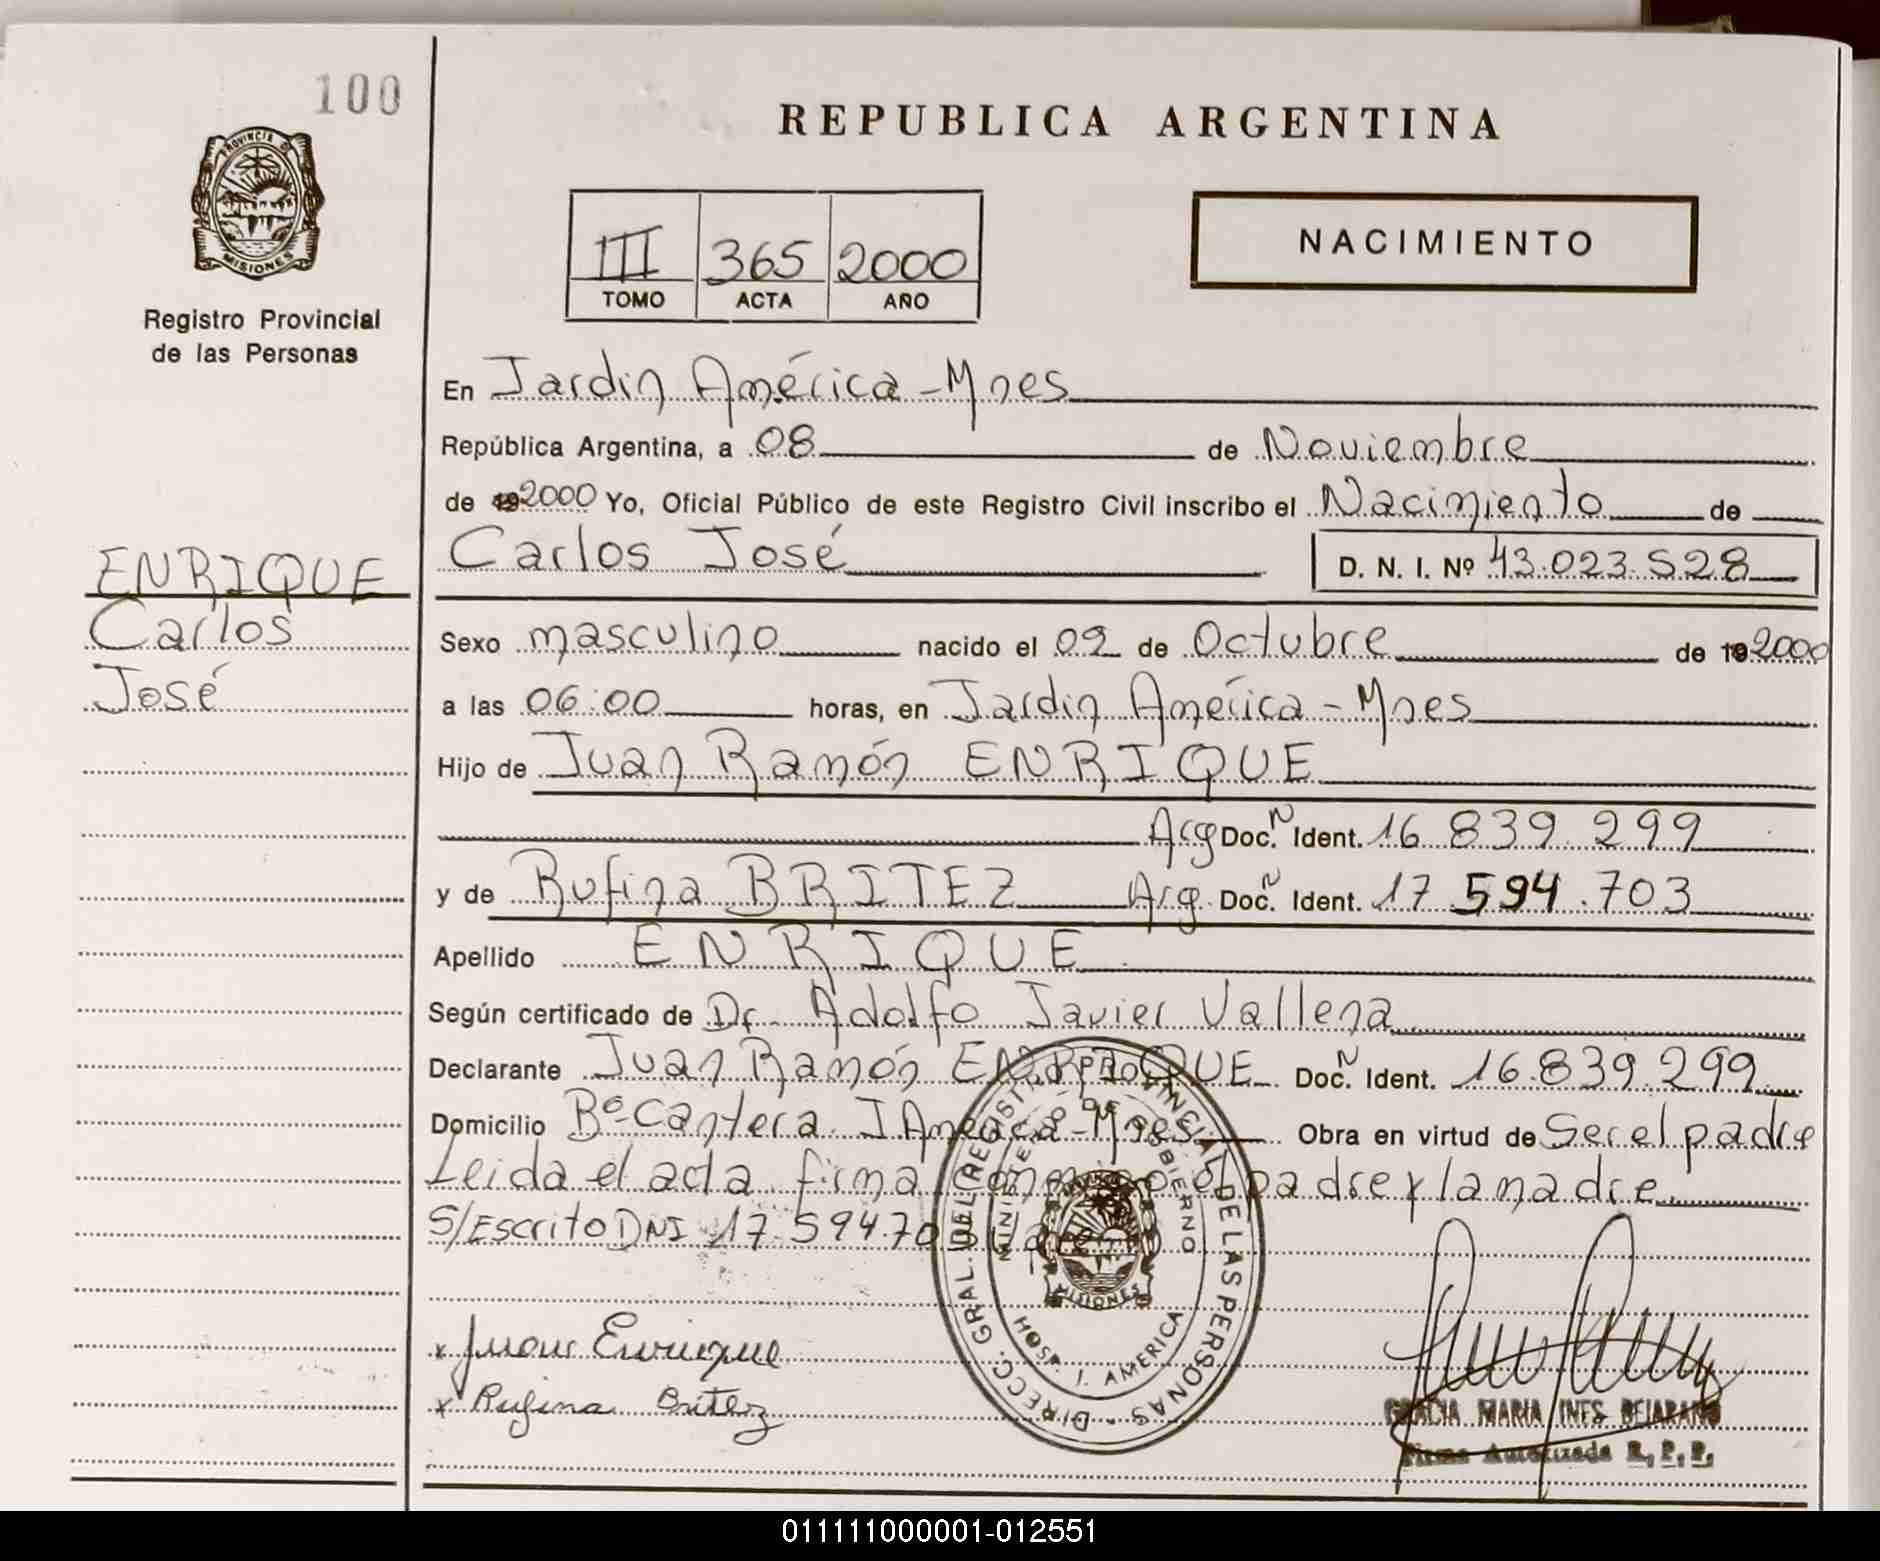 100
REPUBLICA ARGENTINA
PROVINCIA D
MISIONES
III 365 2000
TOMO ACTA AÑO
NACIMIENTO
Registro Provincial
de las Personas
En Jardin América - Mnes
República Argentina, a 08 de Noviembre
de 19 2000 Yo, Oficial Público de este Registro Civil inscribo el Nacimiento de
Carlos José D. N. I. Nº 43.023.528
ENRIQUE
Carlos
José
Sexo masculino nacido el 09 de Octubre de 19 2000
a las 06:00 horas, en Jardin América - Mnes
Hijo de Juan Ramón ENRIQUE
Arg Doc. N Ident. 16 839 299
y de Rufina BRITEZ Arg. Doc. N Ident. 17 594.703
Apellido ENRIQUE
Según certificado de Dr. Adolfo Javier Vallena
Declarante Juan Ramón ENRIQUE Doc. N Ident. 16.839.299
Domicilio Bº Cantera J América - Mnes Obra en virtud de Ser el padre
Leida el acta firma conmigo el padre y la madre
S/Escrito DNI 17.594.703 Vale
DIRECC. GRAL. DEL REGISTRO PROVINCIAL DE LAS PERSONAS
MINISTERIO DE GOBIERNO
MISIONES
HOSP. J. AMERICA
x Juan Enrique
x Rufina Britez
GRACIA MARIA INES BEJARANO
Firma Autorizada R. P. P.
011111000001-012551